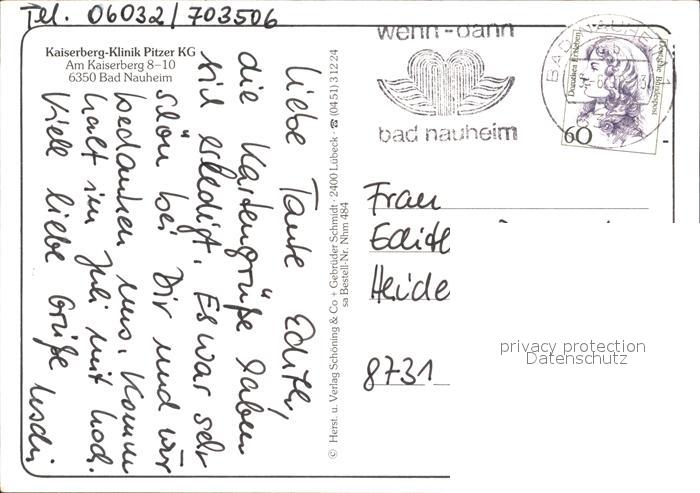 Tel. 06032/703506
Kaiserberg-Klinik Pitzer KG
Am Kaiserberg 8-10
6350 Bad Nauheim
liebe Tante Edith,
die Kartengrüße haben
sich erledigt. Es war sehr
schön bei Dir und wir
bedanken uns. Komm
halt im Juli mit hoch.
Viele liebe Grüße Uschi
© Herst. u. Verlag Schöning & Co + Gebrüder Schmidt · 2400 Lübeck · ☎ (04 51) 3 12 24
sa Bestell-Nr. Nhm 484
wenn-dann
bad nauheim
BAD NAUHEIM
Dorothea Erxleben
Deutsche Bundespost
60
Frau
Edith
Heide
8731
privacy protection
Datenschutz